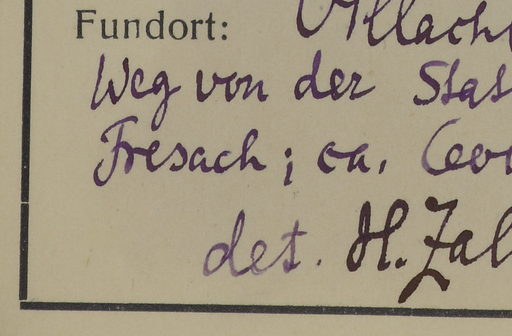 Fundort: Villach
Weg von der Stat
Fresach; ca.
det. H. Zal